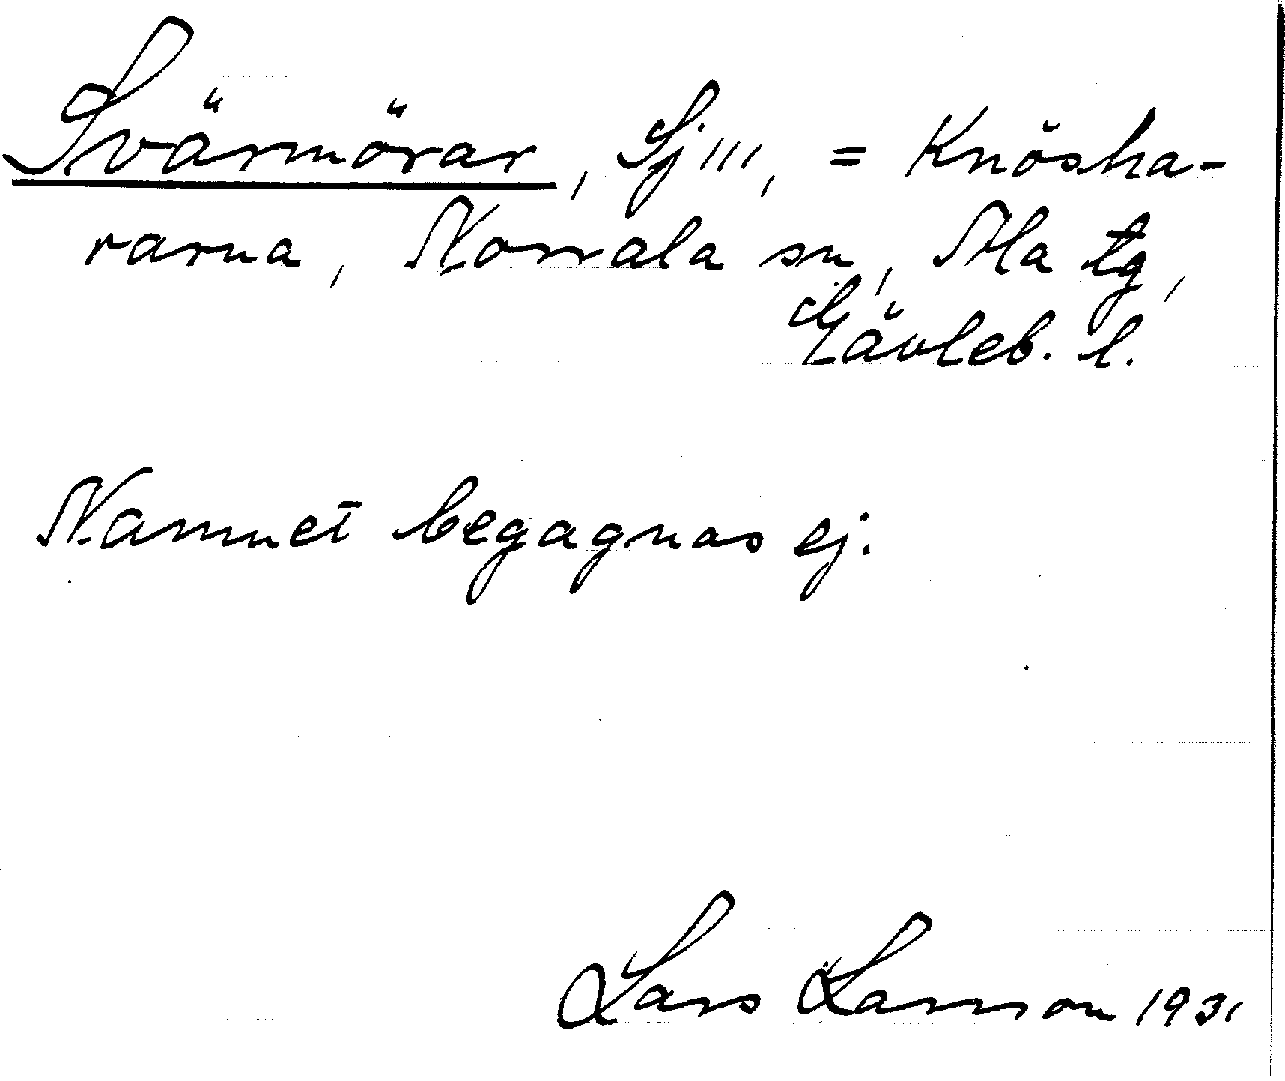 Svärmörar, Sj III, = Knösha-
rarna, Norrala sn, Ala tg,
Gävleb. l.
Namnet begagnas ej.
Lars Larsson 1931